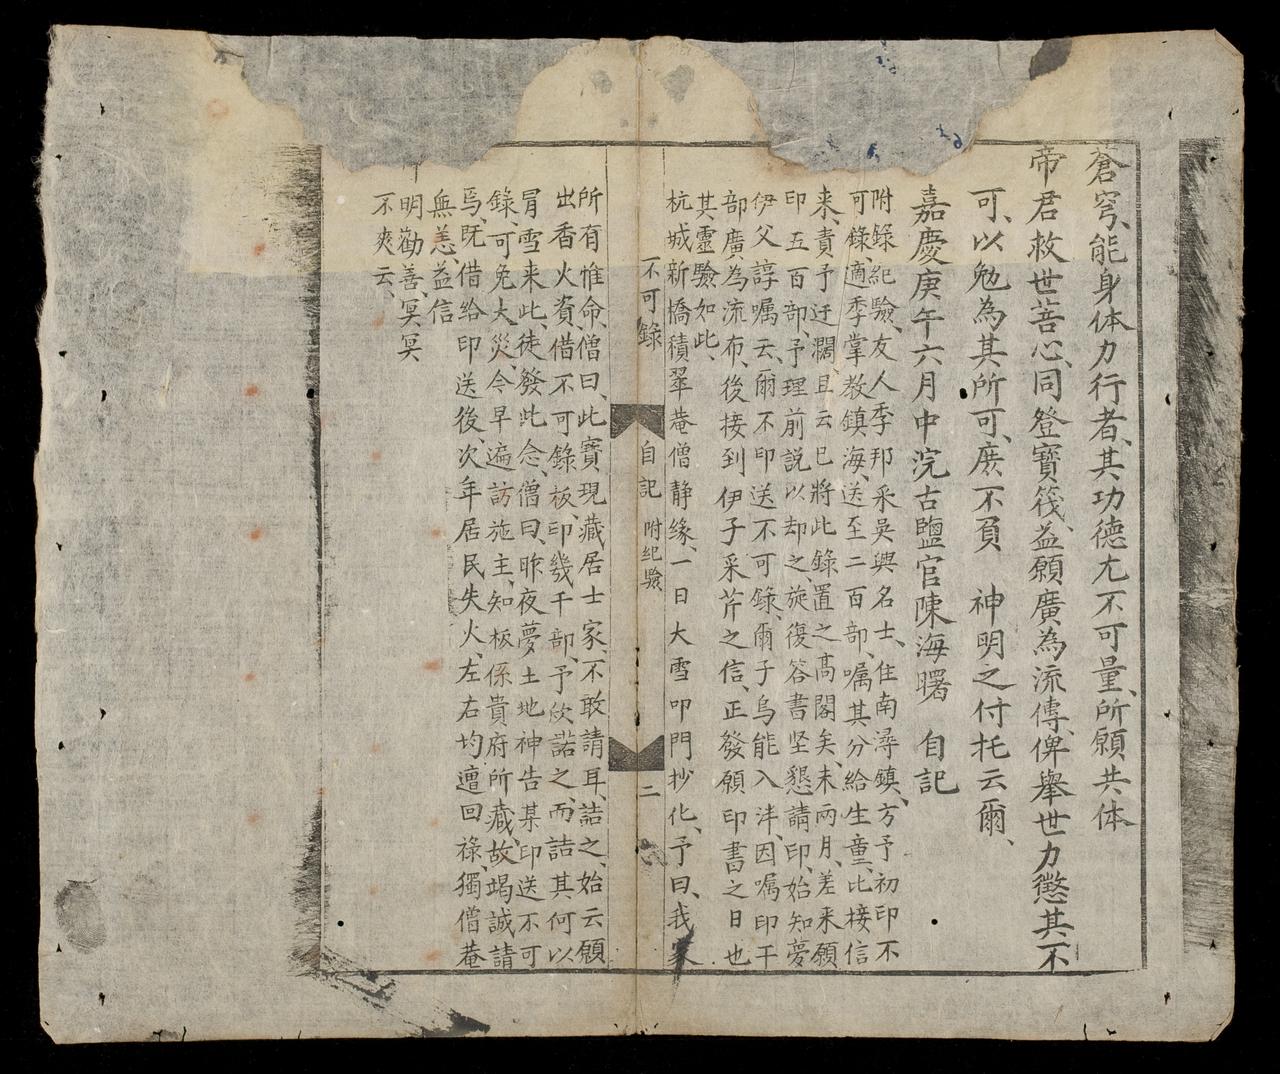 蒼穹、能身体力行者、其功德尤不可量、所願共体
帝君救世菩心、同登寶筏、益願廣為流傳、俾舉世力懲其不
可、以勉為其所可、庶不負　神明之付托云爾、
嘉慶庚午六月中浣古鹽官陳海曙　自記
附錄紀驗、友人季邦采吳興名士、住南潯鎮、方予初印不
可錄、適季掌教鎮海、送至二百部、嘱其分給生童、比接信
来、責予迂濶、且云已將此錄置之高閣矣、未兩月、差来願
印五百部、予理前説以却之、旋復荅書坚懇請印、始知夢
伊父諄嘱云、爾不印送不可錄、爾子烏能入泮、因嘱印千
部廣為流布、後接到伊子采芹之信、正發願印書之日也
其靈驗如此、
杭城新橋積翠菴僧静緣、一日大雪叩門抄化、予曰、我家
不可錄　自記　附紀驗　二
所有惟命、僧曰、此寶現藏居士家、不敢請耳、詰之、始云願
出香火資、借不可錄板、印幾千部、予欣諾之、而詰其何以
冒雪来此、徒發此念、僧曰、昨夜夢土地神告某、印送不可
錄、可免大災、今早遍訪施主、知板係貴府所藏、故竭誠請
焉、旣借給印送後、次年居民失火、左右均遭回祿、獨僧菴
無恙、益信
明勸善、冥冥
不爽云、